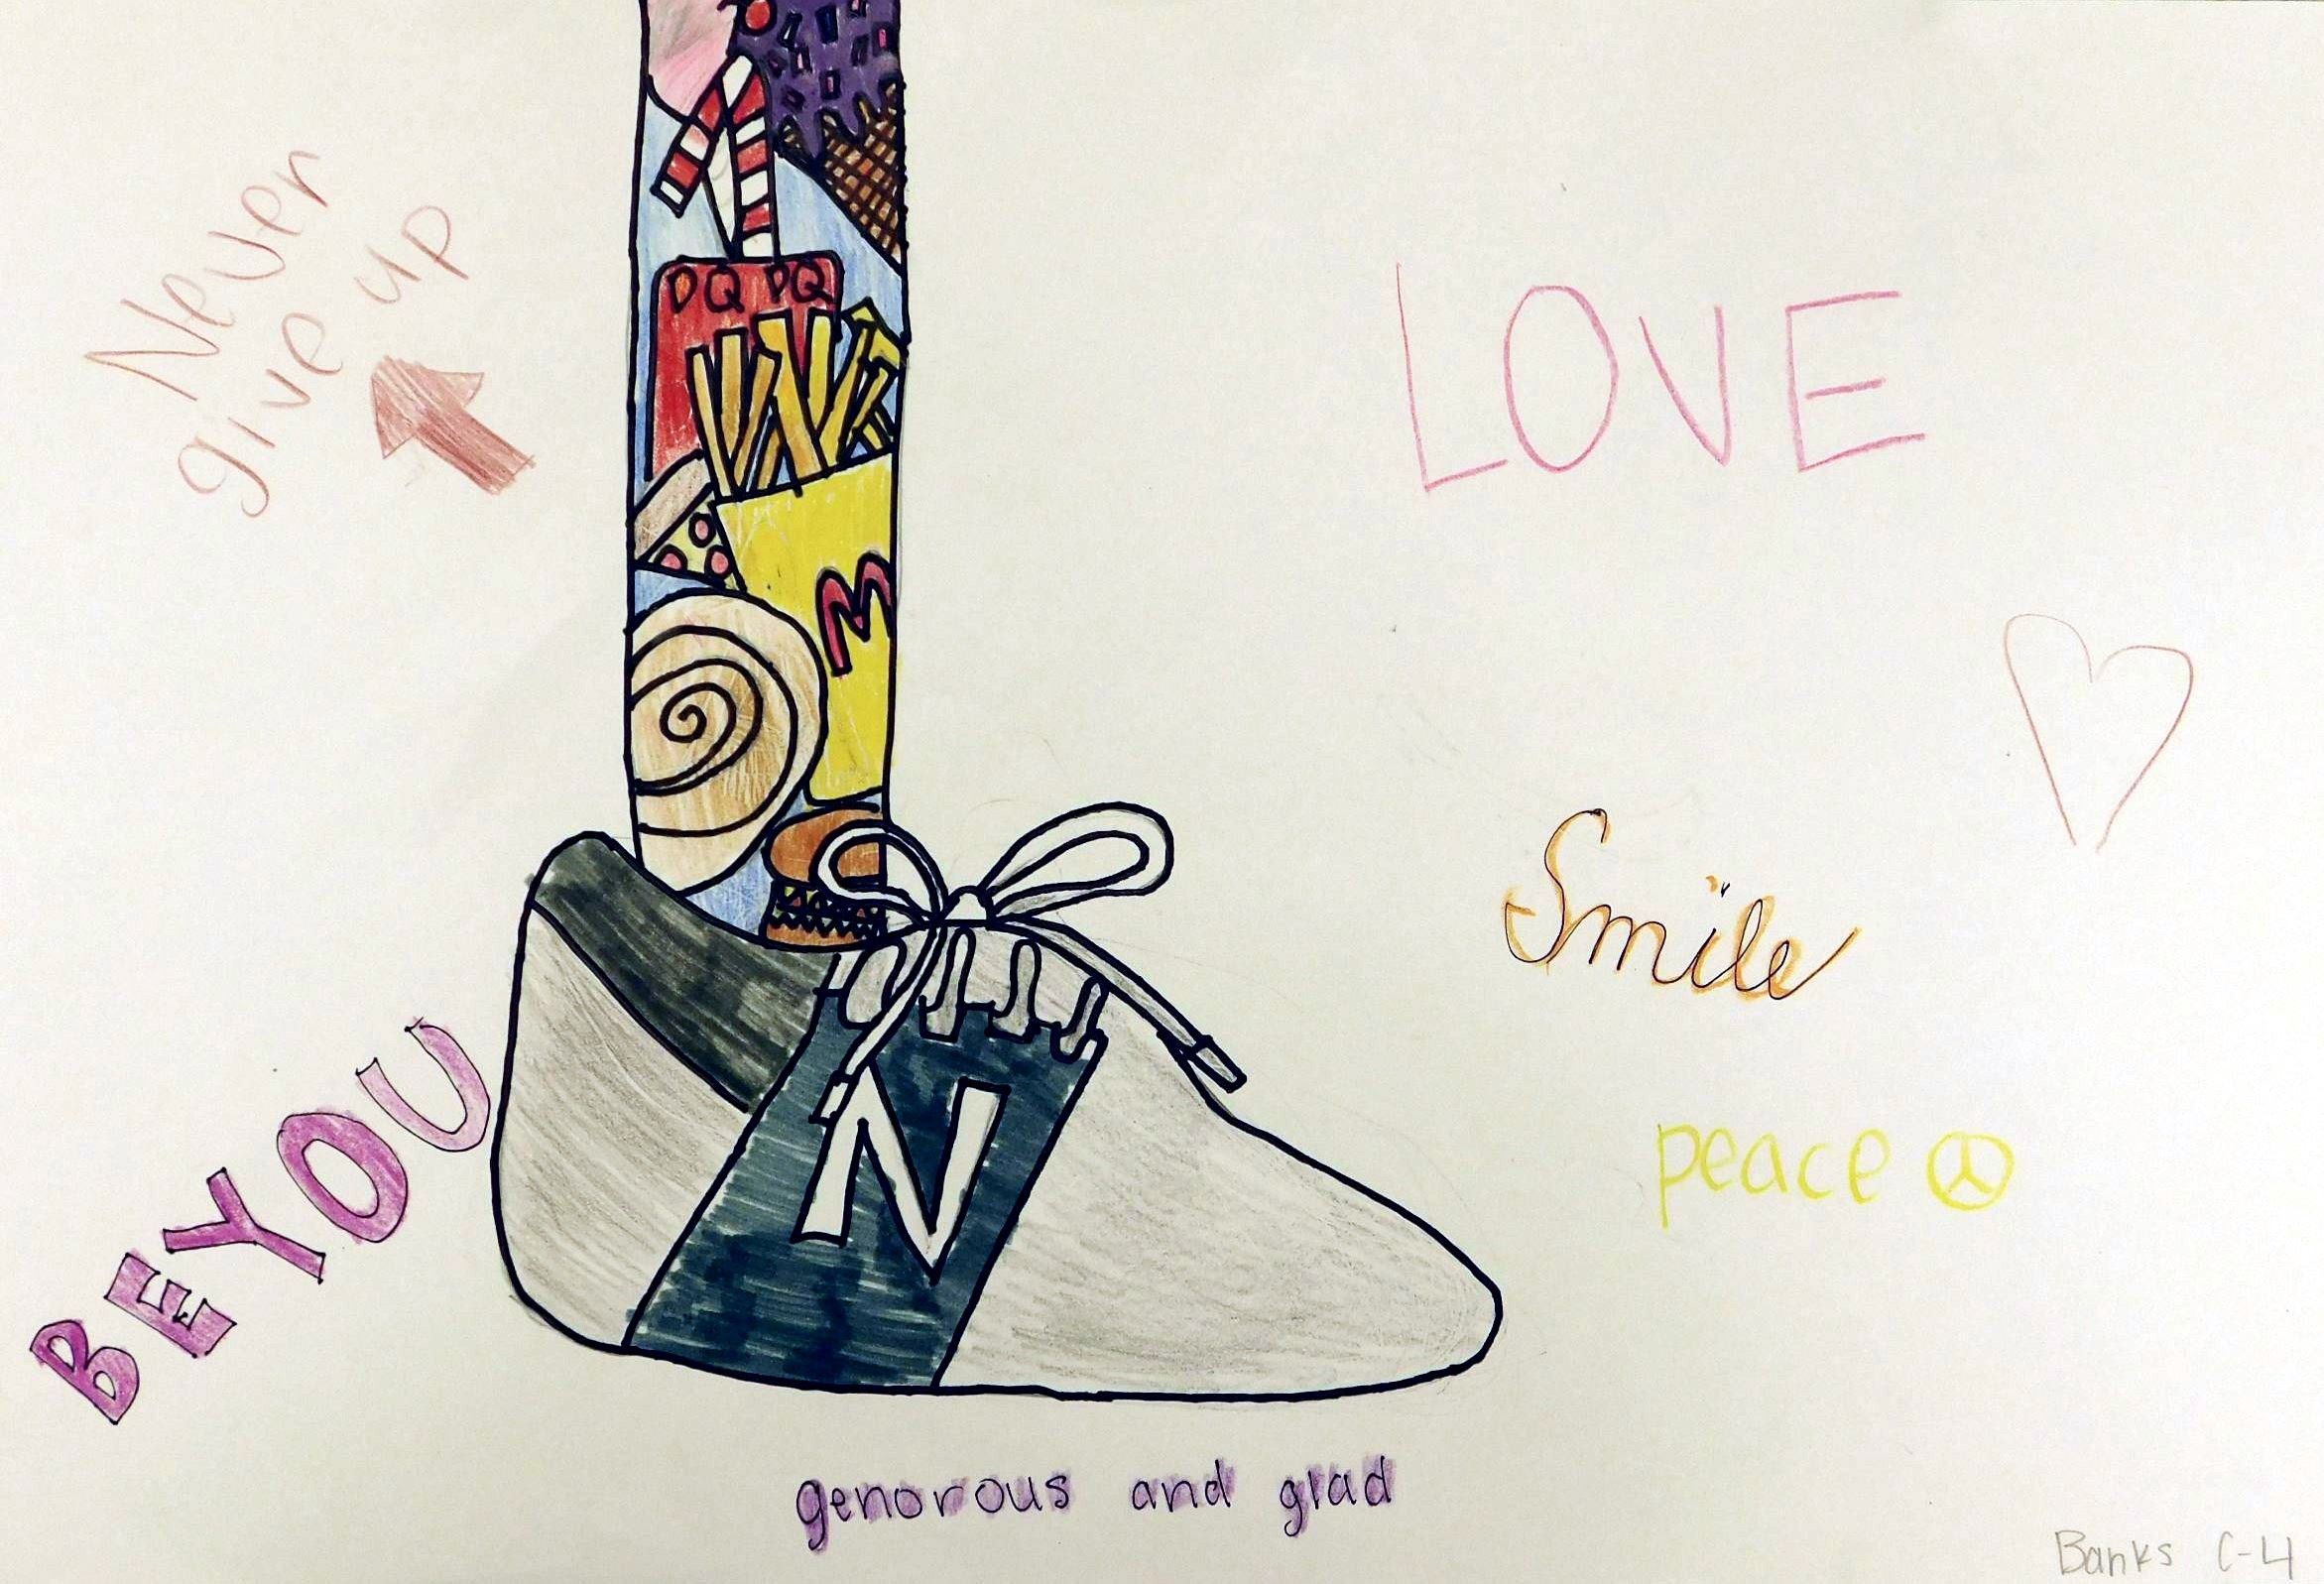 Never
give up
LOVE
DQ DQ
M
Smile
peace
BE YOU
N
genorous and glad
Banks C-4